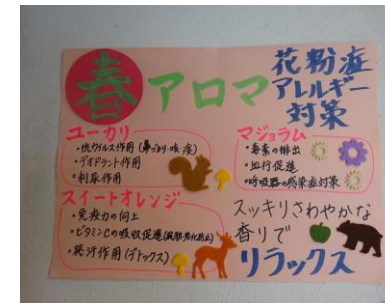 春アロマ
花粉症
アレルギー
対策
ユーカリ
・抗ウイルス作用(鼻づまり・咳・痰)
・デオドラント作用
・利尿作用
マジョラム
・毒素の排出
・血行促進
・呼吸器の感染症対策
スイートオレンジ
・免疫力の向上
・ビタミンCの吸収促進(風邪・老化防止)
・発汗作用(デトックス)
スッキリさわやかな
香りで
リラックス